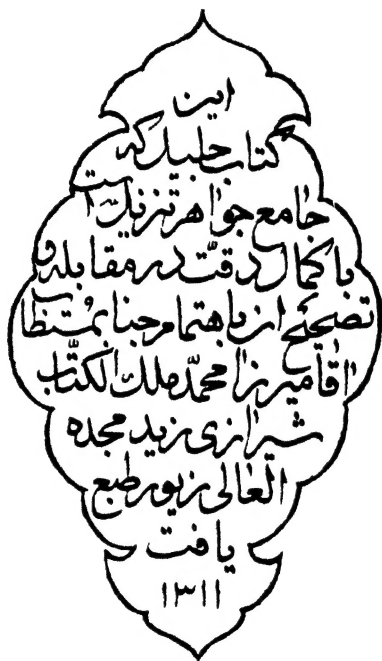 این
کتاب جلید که
جامع جواهر تنزیل است
با کمال دقت در مقابله و
تصحیح از باهتمام جناب مستطاب
آقا میرزا محمد ملک الکتّاب
شیرازی زید مجده
العالی زیور طبع
یافت
۱۳۱۱